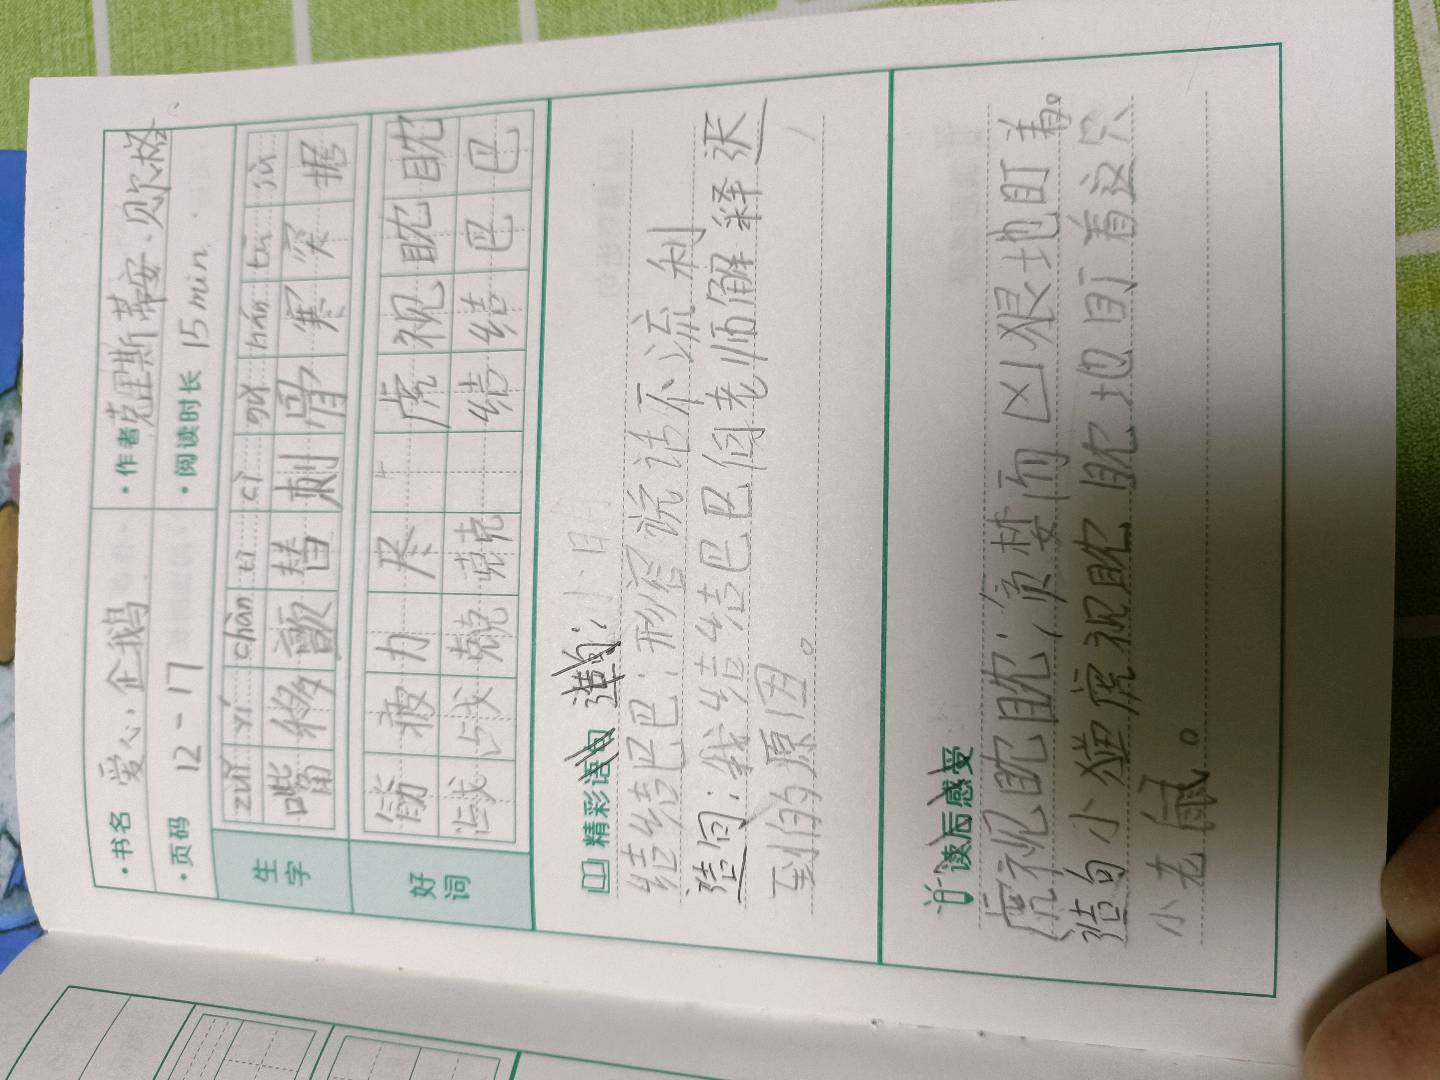 ·书名 爱心企鹅 ·作者 克里斯蒂安·贝尔格
·页码 12-17 ·阅读时长 15min
生字
zuǐ yí chàn tì cì gǔ hán tū jù
嘴 移 颤 替 刺 骨 寒 突 据
好词
筋 疲 力 尽 虎 视 眈 眈
战 战 兢 兢 结 结 巴 巴
精彩语句 造句:
结结巴巴:形容说话不流利
造句:我结结巴巴向老师解释迟
到的原因。
读后感受
虎视眈眈:贪婪而凶狠地盯着。
造句 小猫虎视眈眈地盯着这只
小老鼠。